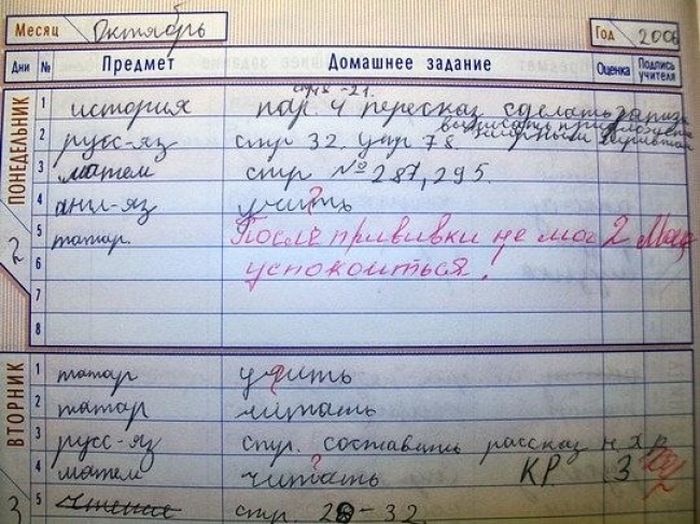 Месяц Октябрь Год 2006
Дни № Предмет Домашнее задание Оценка Подпись учителя
ПОНЕДЕЛЬНИК
2
стр 18-21.
1 история пар. 4 пересказ сделать
2 русс-яз стр 32. упр 78 выписать
3 матем стр № 287, 295.
4 англ-яз учить ?
5 татар. После прививки не мог 2
6 успокоиться!
7
8
ВТОРНИК
3
1 татар учить
2 татар читать
3 русс-яз стр. составить рассказ
4 матем читать ? КР 3
5 чтение стр. 28-32